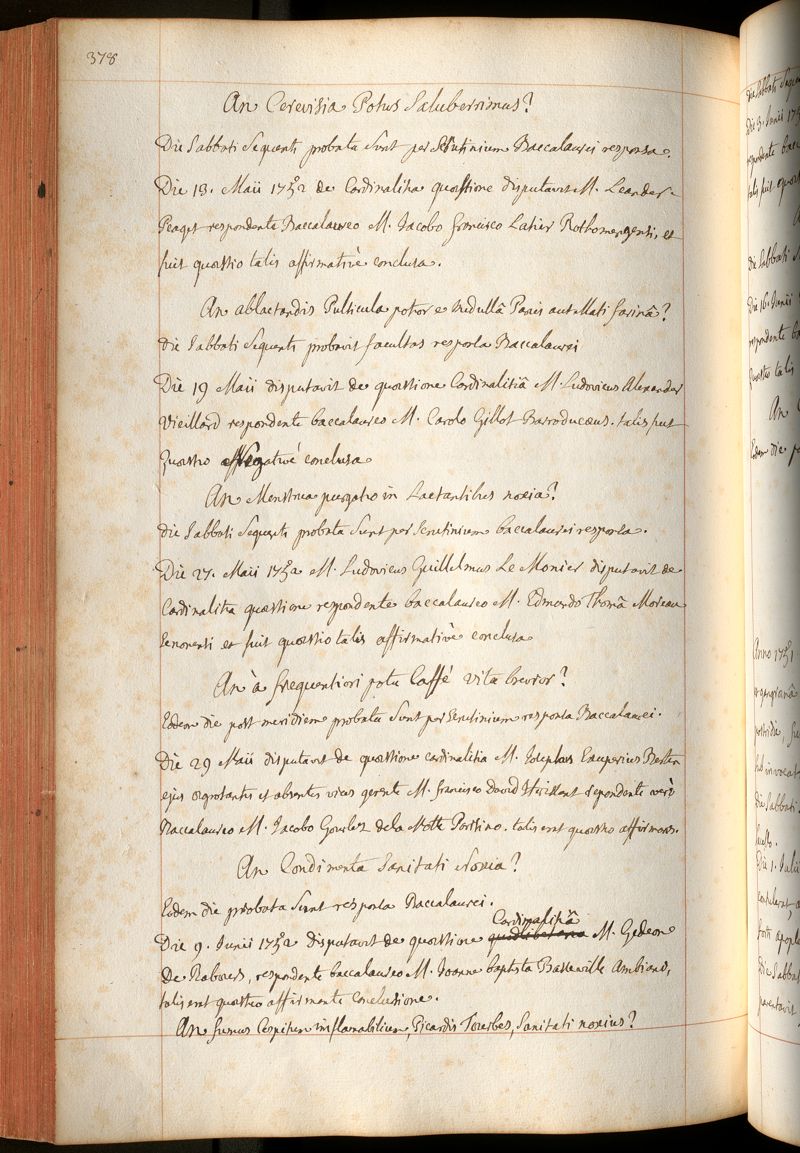 378
An Cerevisia Potus Saluberrimus?
Die Sabbati Sequenti probata Sunt per Scrutinium Baccalaurei responsa.
Die 13. Maii 1752 de Cardinalitia quæstione disputavit M. Leander
Peaget respondente Baccalaureo M. Jacobo francisco Latier Rothomagensi, et
fuit quæstio talis affirmativè conclusa.
An ablactandis Pulticula potior e medullâ Panis aut Lati farinâ?
die Sabbati Sequenti probavit facultas responsa Baccalaurei
Die 19 Maii disputavit de quæstione Cardinalitiâ M. Ludovicus Alexander
Vieillard respondente baccalaureo M. Carolo Gillot Barroducæus. talis fuit
quæstio negativè conclusa
An Menstrua purgatio in Lactantibus noxia?
die Sabbati Sequenti probata Sunt per Scrutinium baccalaurei responsa.
Die 27. Maii 1752 M. Ludovicus Guillelmus Le Monier disputavit de
Cardinalitia quæstione respondente baccalaureo M. Edmundo Thomâ Moreau
Senonensi et fuit quæstio talis affirmativè conclusa
An à frequentiori potu Caffé vita brevior?
Eodem die post meridiem probata Sunt per Scrutinium responsa Baccalaurei.
Die 29 Maii disputavit de quæstione cardinalitia M. Josephus Exuperius Bertin
ejus ægrotantis et absentis vices gerente M. francisco David respondente verò
Baccalaureo M. Jacobo de la Motte Parisino. talis erat quæstio affirmans.
An Condimenta Sanitati Noxia?
Eodem die probata Sunt responsa Baccalaurei.
Cardinalitiâ
Die 9. Junii 1752 disputavit de quæstione quodlibetaria M. Gedeon
De Rabours, respondente baccalaureo M. Joanne baptista Basseville Ambianus,
talis erat quæstio affirmante Conclusione.
An fumus Cespitum inflamabilium, Picardis Tourbes, Sanitati noxius?